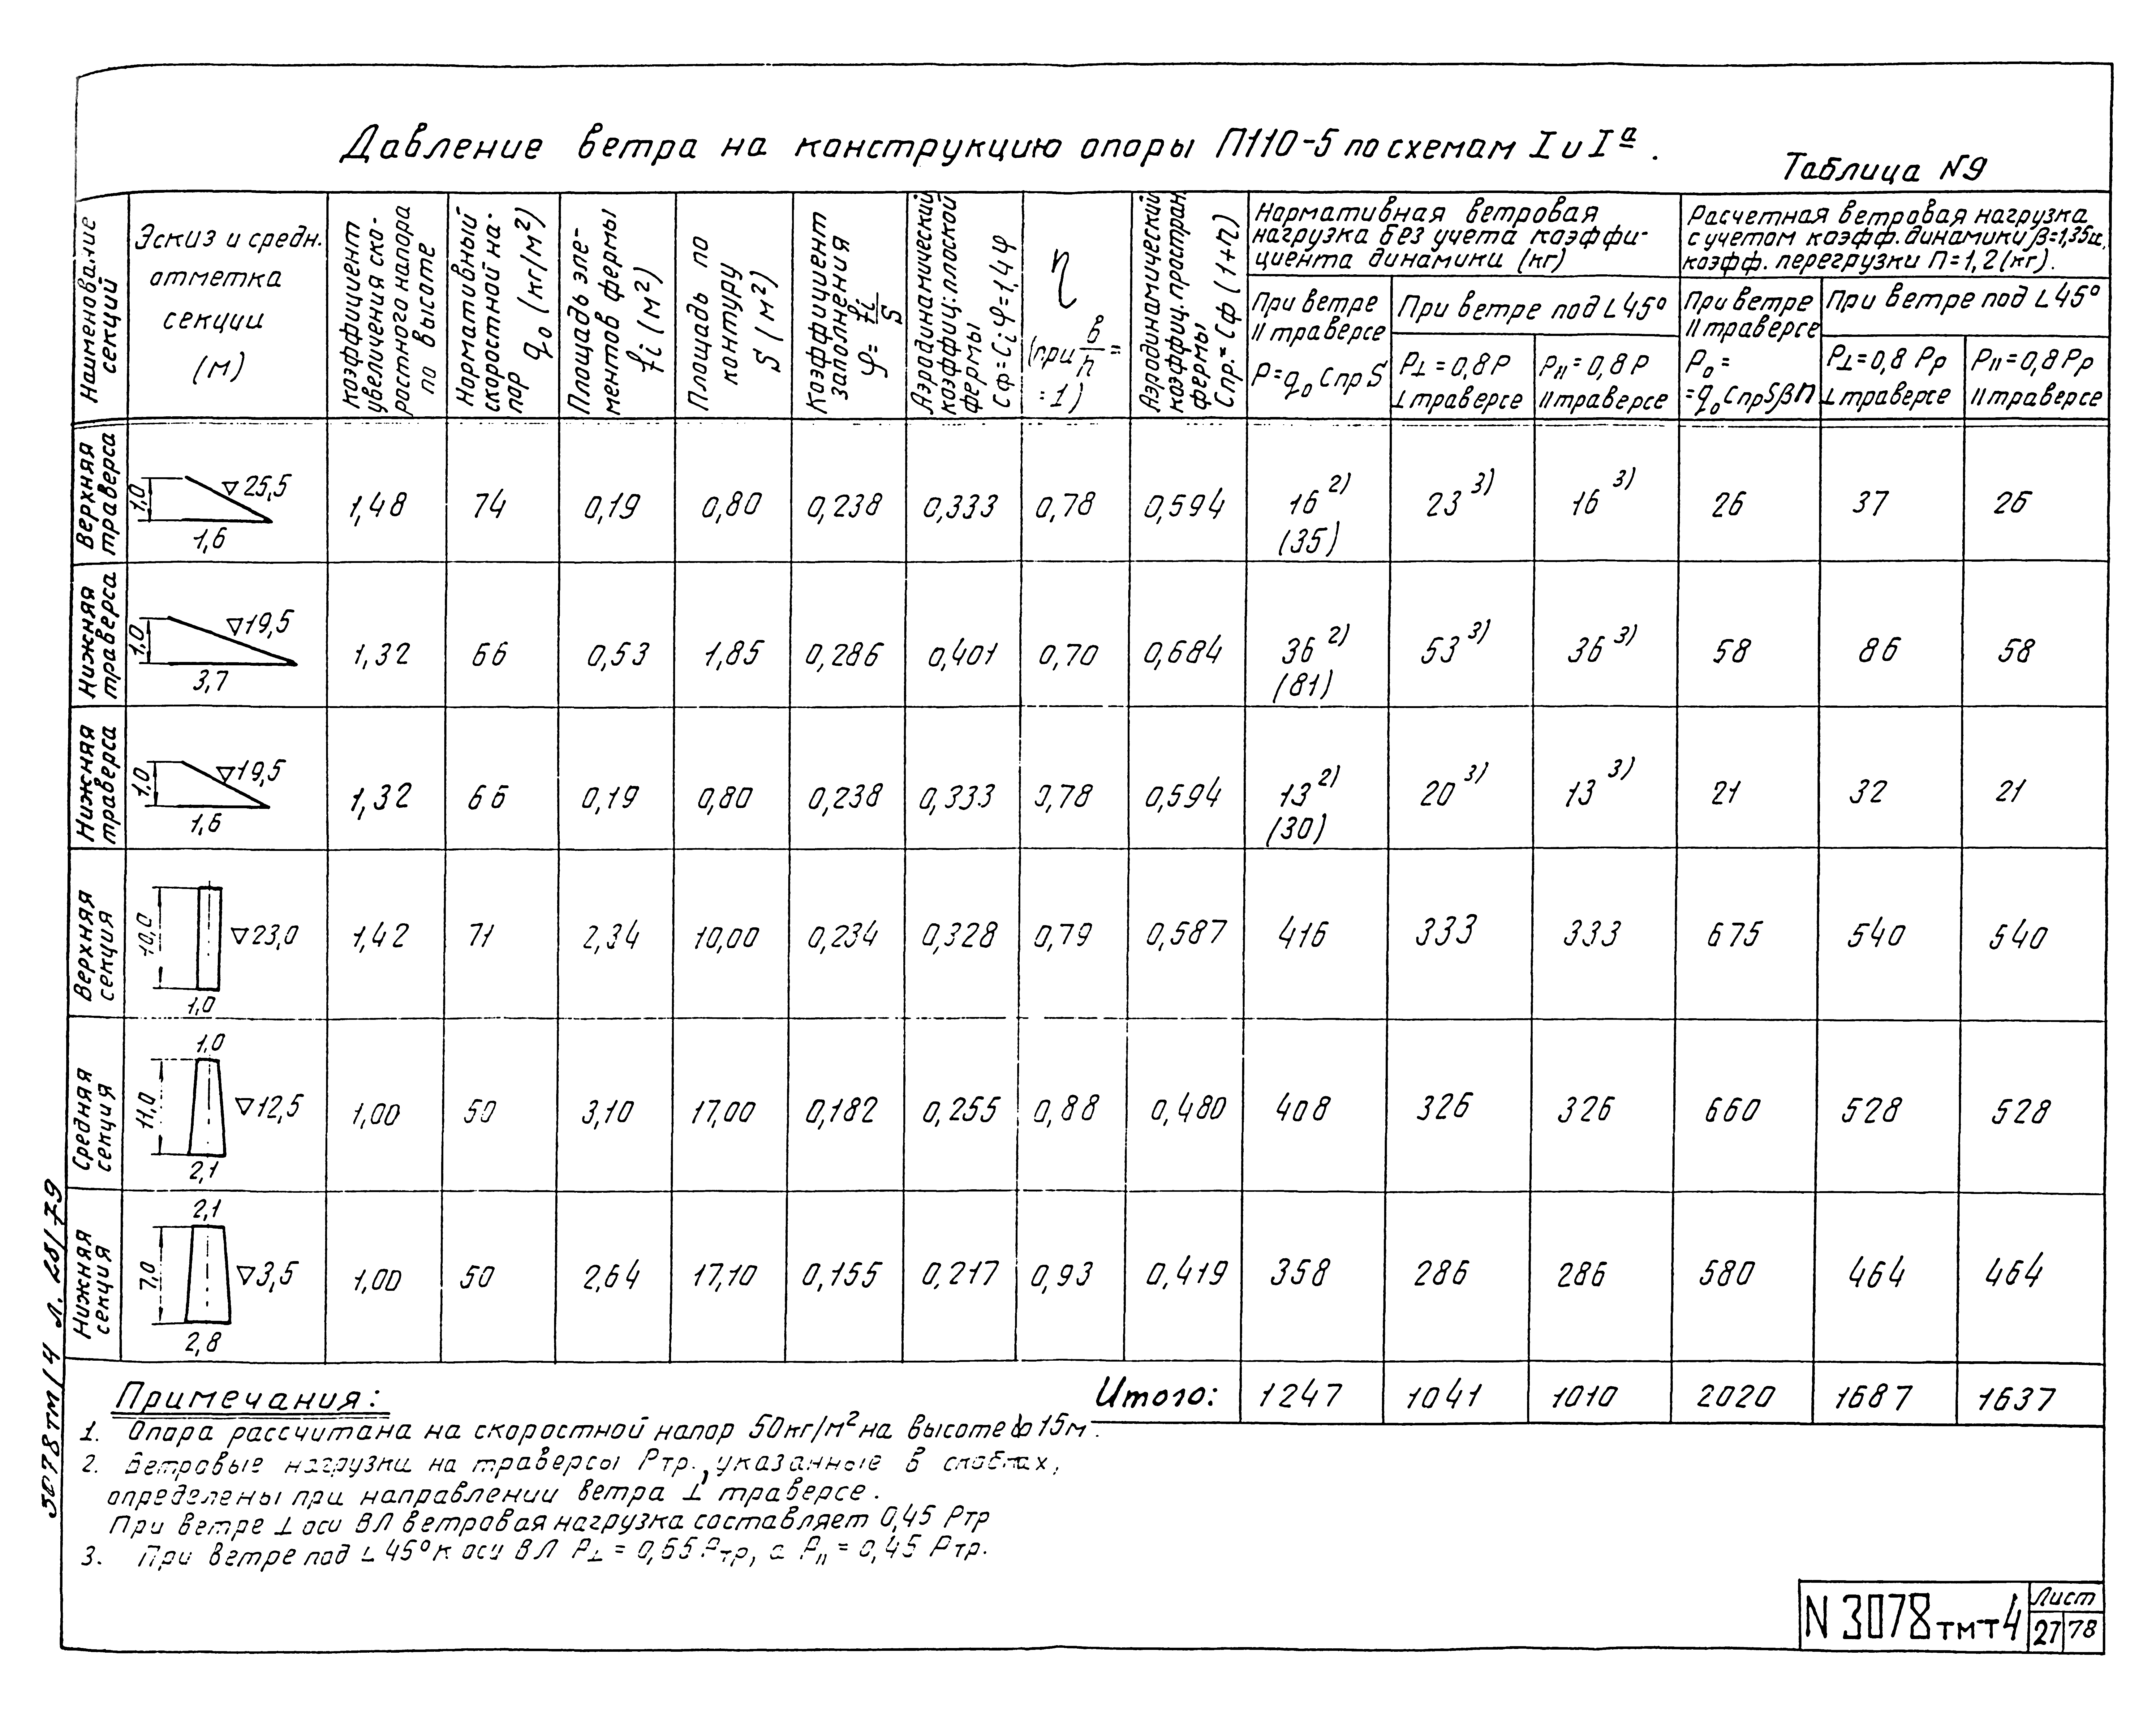 Давление ветра на конструкцию опоры П110-5 по схемам I и Iа.
Таблица N9
Наименование секций
Эскиз и средн. отметка секции (м)
коэффициент увеличения скоростного напора по высоте
Нормативный скоростной напор q₀ (кг/м²)
Площадь элементов фермы fi (м²)
Площадь по контуру S (м²)
Коэффициент заполнения φ= fi/S
Аэродинамический коэффиц. плоской фермы Сф=Сi φ=1,4φ
η (при в/h = =1)
Аэродинамический коэффиц. простран. фермы Спр.= Сф (1+η)
Нормативная ветровая нагрузка без учета коэффициента динамики (кг)
При ветре II траверсе P=q₀ Спр S
При ветре под ∠45°
P⊥=0,8P ⊥траверсе
PII=0,8P II траверсе
Расчетная ветровая нагрузка с учетом коэфф. динамики β=1,35и, коэфф. перегрузки п=1,2 (кг).
При ветре II траверсе P₀= =q₀ СпрSβп
При ветре под ∠45°
P⊥=0,8 Pр ⊥траверсе
PII=0,8 Pр II траверсе
Верхняя траверса 1,0 1,6 ▽25,5 1,48 74 0,19 0,80 0,238 0,333 0,78 0,594 16 2) (35) 23 3) 16 3) 26 37 26
Нижняя траверса 1,0 3,7 ▽19,5 1,32 66 0,53 1,85 0,286 0,401 0,70 0,684 36 2) (81) 53 3) 36 3) 58 86 58
Нижняя траверса 1,0 1,6 ▽19,5 1,32 66 0,19 0,80 0,238 0,333 0,78 0,594 13 2) (30) 20 3) 13 3) 21 32 21
Верхняя секция 10,0 1,0 ▽23,0 1,42 71 2,34 10,00 0,234 0,328 0,79 0,587 416 333 333 675 540 540
Средняя секция 1,0 11,0 2,1 ▽12,5 1,00 50 3,10 17,00 0,182 0,255 0,88 0,480 408 326 326 660 528 528
Нижняя секция 2,1 7,0 2,8 ▽3,5 1,00 50 2,64 17,10 0,155 0,217 0,93 0,419 358 286 286 580 464 464
Итого: 1247 1041 1010 2020 1687 1637
Примечания:
1. Опора рассчитана на скоростной напор 50кг/м² на высоте до 15м.
2. Ветровые нагрузки на траверсы Ртр., указанные в скобках,
определены при направлении ветра ⊥ траверсе.
При ветре ⊥ оси ВЛ ветровая нагрузка составляет 0,45 Ртр
3. При ветре под ∠45° к оси ВЛ P⊥=0,65 Ртр, а PII=0,45 Ртр.
3078тм/4 л. 28/79
N 3078тм-т4
Лист
27 78